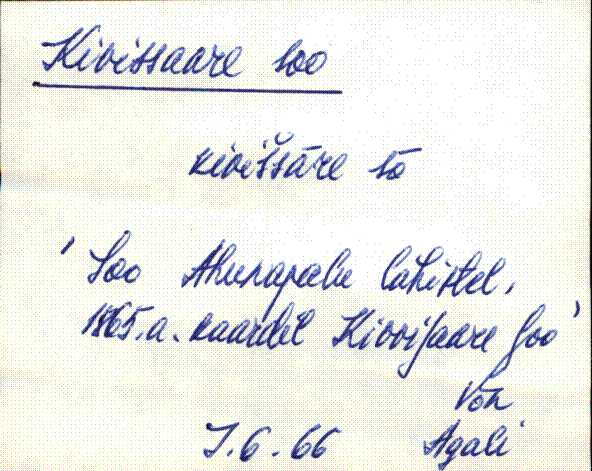 Kivissaare soo
kivìššāre sō
' Soo Ahunapalu lähistel,
1865.a. kaardil Kiwwiſaare ſoo'
Võn
7.6.66 Agali